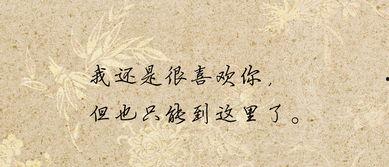 我还是很喜欢你，
但也只能到这里了。